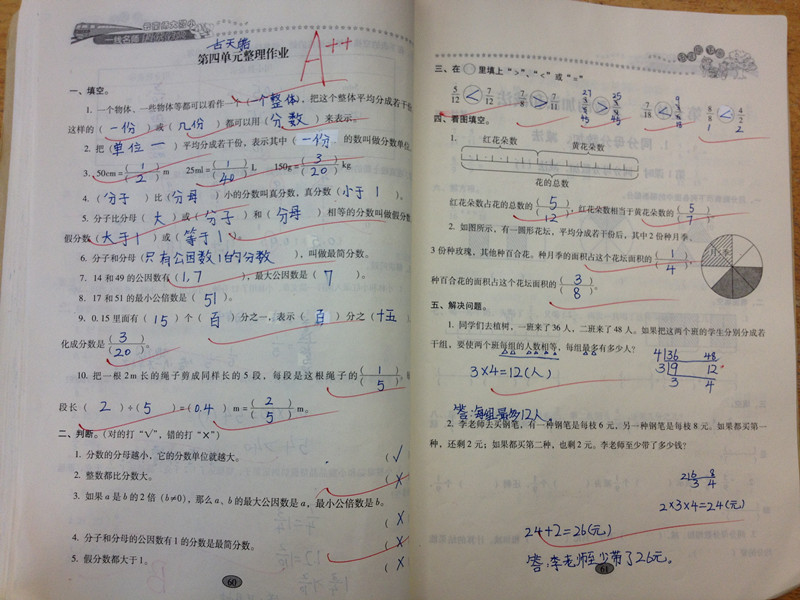 一线名师
古天能
第四单元整理作业
A++
一、填空。
1. 一个物体、一些物体等都可以看作一个(一个整体),把这个整体平均分成若干份,
这样的(一份)或(几份)都可以用(分数)来表示。
2. 把(单位一)平均分成若干份,表示其中(一份)的数叫做分数单位。
3. 50cm=(1)/(2)m 25ml=(1)/(40)L 150g=(3)/(20)kg
4. (分子)比(分母)小的分数叫真分数,真分数(小于1)。
5. 分子比分母(大)或(分子)和(分母)相等的分数叫做假分数,
假分数(大于1)或(等于1)。
6. 分子和分母(只有公因数1的分数),叫做最简分数。
7. 14和49的公因数有(1,7),最大公因数是(7)。
8. 17和51的最小公倍数是(51)。
9. 0.15里面有(15)个(百)分之一,表示(百)分之(十五)
化成分数是(3)/(20)。
10. 把一根2m长的绳子剪成同样长的5段,每段是这根绳子的(1)/(5),每
段长(2)÷(5)=(0.4)m=(2)/(5)m。
二、判断。(对的打“√”,错的打“×”)
1. 分数的分母越小,它的分数单位就越大。(√)
2. 整数都比分数大。(×)
3. 如果a是b的2倍(b≠0),那么a、b的最大公因数是a,最小公倍数是b。(×)
4. 分子和分母的公因数有1的分数是最简分数。(×)
5. 假分数都大于1。(×)
60
三、在○里填上“>”、“<”或“=”
5/12 < 7/12 7/8 > 7/11 > 7/18 < 8/8 < 4/2
1 2
四、看图填空。
1. 红花朵数 黄花朵数
花的总数
红花朵数占花的总数的(5)/(12),红花朵数相当于黄花朵数的(5)/(7)。
2. 如图所示,有一圆形花坛,平均分成若干份后,其中2份种月季,
3份种玫瑰,其他种百合花。种月季的面积占这个花坛面积的(1)/(4),
种百合花的面积占这个花坛面积的(3)/(8)。
月季
五、解决问题。
1. 同学们去植树,一班来了36人,二班来了48人。如果把这两个班的学生分别分成若
干组,要使两个班每组的人数相等,每组最多有多少人?
4 36 48
3 9 12
3 4
3×4=12(人)
答:每组最多12人。
2. 李老师去买钢笔,有一种钢笔是每枝6元,另一种钢笔是每枝8元。如果都买第一
种,还剩2元;如果都买第二种,也剩2元。李老师至少带了多少钱?
2 6 8
3 4
2×3×4=24(元)
24+2=26(元)
答:李老师至少带了26元。
61